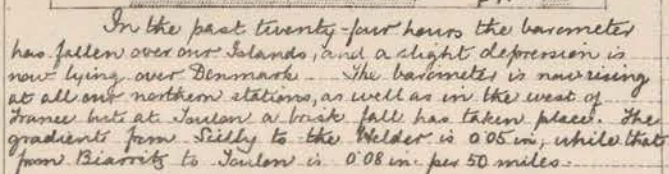 In the past twenty-four hours the barometer
has fallen over our Islands, and a slight depression is
now lying over Denmark. The barometer is now rising
at all our northern stations, as well as in the west of
France but at Toulon a brisk fall has taken place. The
gradient from Scilly to the Helder is 0.05 in, while that
from Biarritz to Toulon is 0.08 in. per 50 miles.